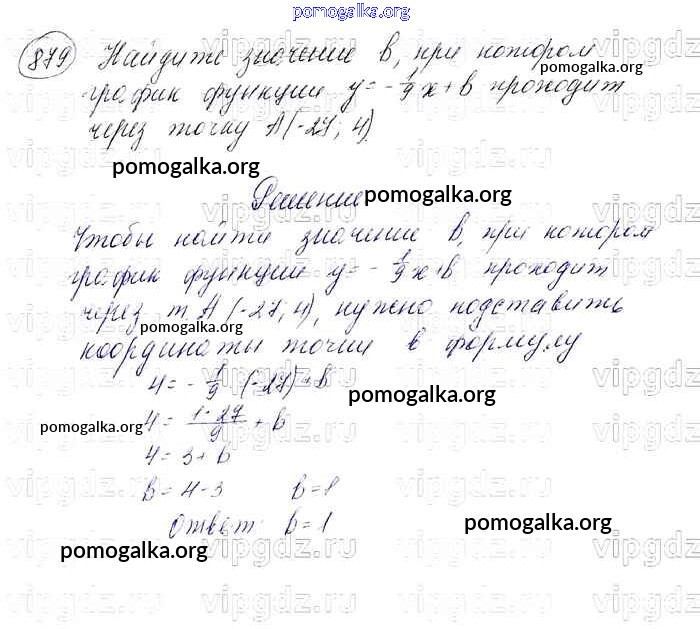 pomogalka.org
879 Найдите значение b, при котором
pomogalka.org
график функции y = -1/9 x + b проходит
через точку A(-27; 4).
pomogalka.org
Решение
pomogalka.org
Чтобы найти значение b, при котором
график функции y = -1/9 x + b проходит
через т. A (-27; 4), нужно подставить
pomogalka.org
координаты точки в формулу
4 = -1/9 · (-27) + b
pomogalka.org
4 = 1·27/9 + b
pomogalka.org
4 = 3 + b
b = 4 - 3 b = 1
Ответ: b = 1
pomogalka.org
pomogalka.org
vipgdz.ru